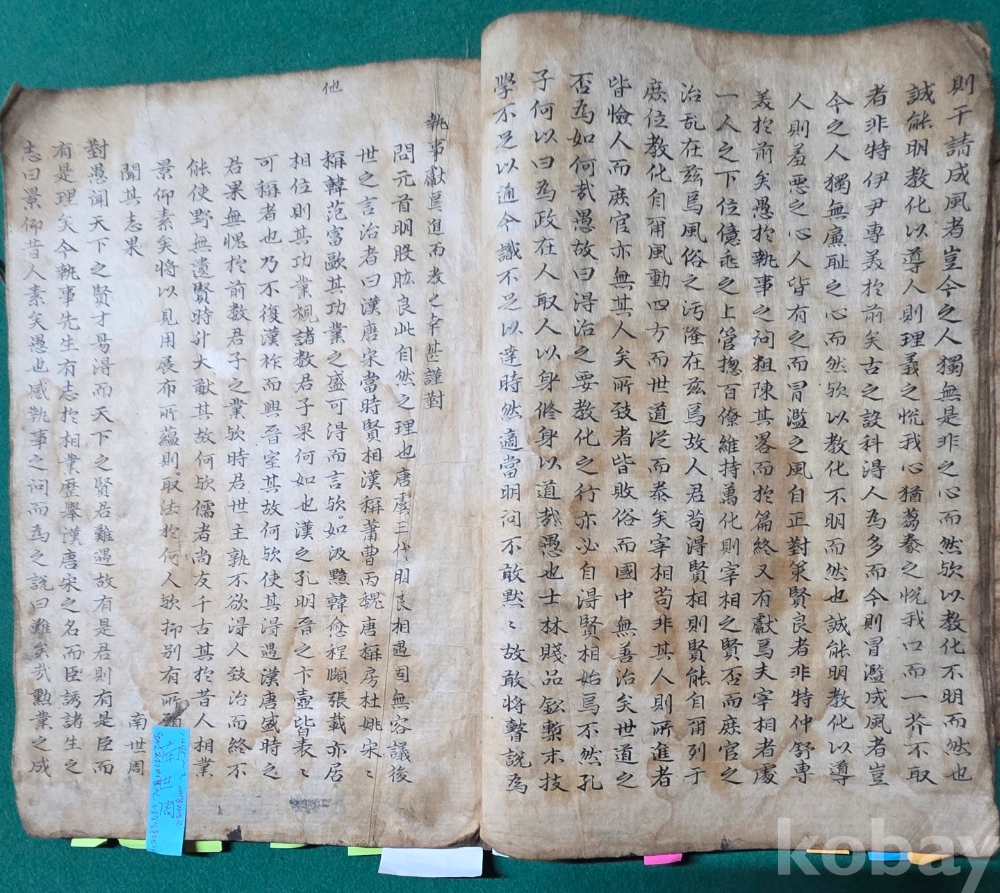 則干請成風者豈今之人獨無是非之心而然欤以教化不明而然也
誠能明教化以導人則理義之悅我心猶芻豢之悅我口而一芥不取
者非特伊尹專美於前矣古之設科得人爲多而今則冒濫成風者豈
今之人獨無廉耻之心而然欤以教化不明而然也誠能明教化以導
人則羞惡之心人皆有之而冒濫之風自正對策賢良者非特仲舒專
美於前矣愚於執事之问粗陳其畧而於篇終又有獻焉夫宰相者處
一人之下位億兆之上管揔百僚維持萬化則宰相之賢否而庶官之
治乱在玆焉風俗之汚隆在玆焉故人君苟得賢相則賢能自爾列于
庶位教化自爾風動四方而世道泛而泰矣宰相苟非其人則所進者
皆憸人而庶官亦無其人矣所致者皆敗俗而國中無善治矣世道之
否爲如何㢤愚故曰淂治之要教化之行亦必自淂賢相始焉不然孔
子何以曰爲政在人取人以身修身以道㢤愚也士林賤品鈆槧末技
學不足以通今識不足以達時然適當明问不敢默〻故敢將瞽說爲
執事獻焉進而教之幸甚謹對
他
問元首明股肱良此自然之理也唐虞三代明良相遇固無容議後
世之言治者曰漢唐宋當時賢相漢稱蕭曹丙魏唐稱房杜姚宋〻
稱韓范富歐其功業之盛可得而言欤如汲黯韓愈程顥張載亦居
相位則其功業視諸数君子果何如也漢之孔明晉之卞壼皆表〻
可稱者也乃不復漢祚而興晉室其故何欤使其淂遇漢唐盛時之
君果無愧於前数君子之業欤時君世主孰不欲淂人致治而終不
能使野無遺賢時升大猷其故何欤儒者尚友千古其於昔人相業
景仰素矣將以見用展布所蘊則取法於何人欤抑別有所
願聞其志果
南世周
對愚聞天下之賢才易淂而天下之賢君難遇故有是君則有是臣而
有是理矣今執事先生有志於相業歷擧漢唐宋之名而臣誘諸生之
志曰景仰昔人素矣愚也感執事之问而爲之說曰難矣㢤勳業之成
kobay